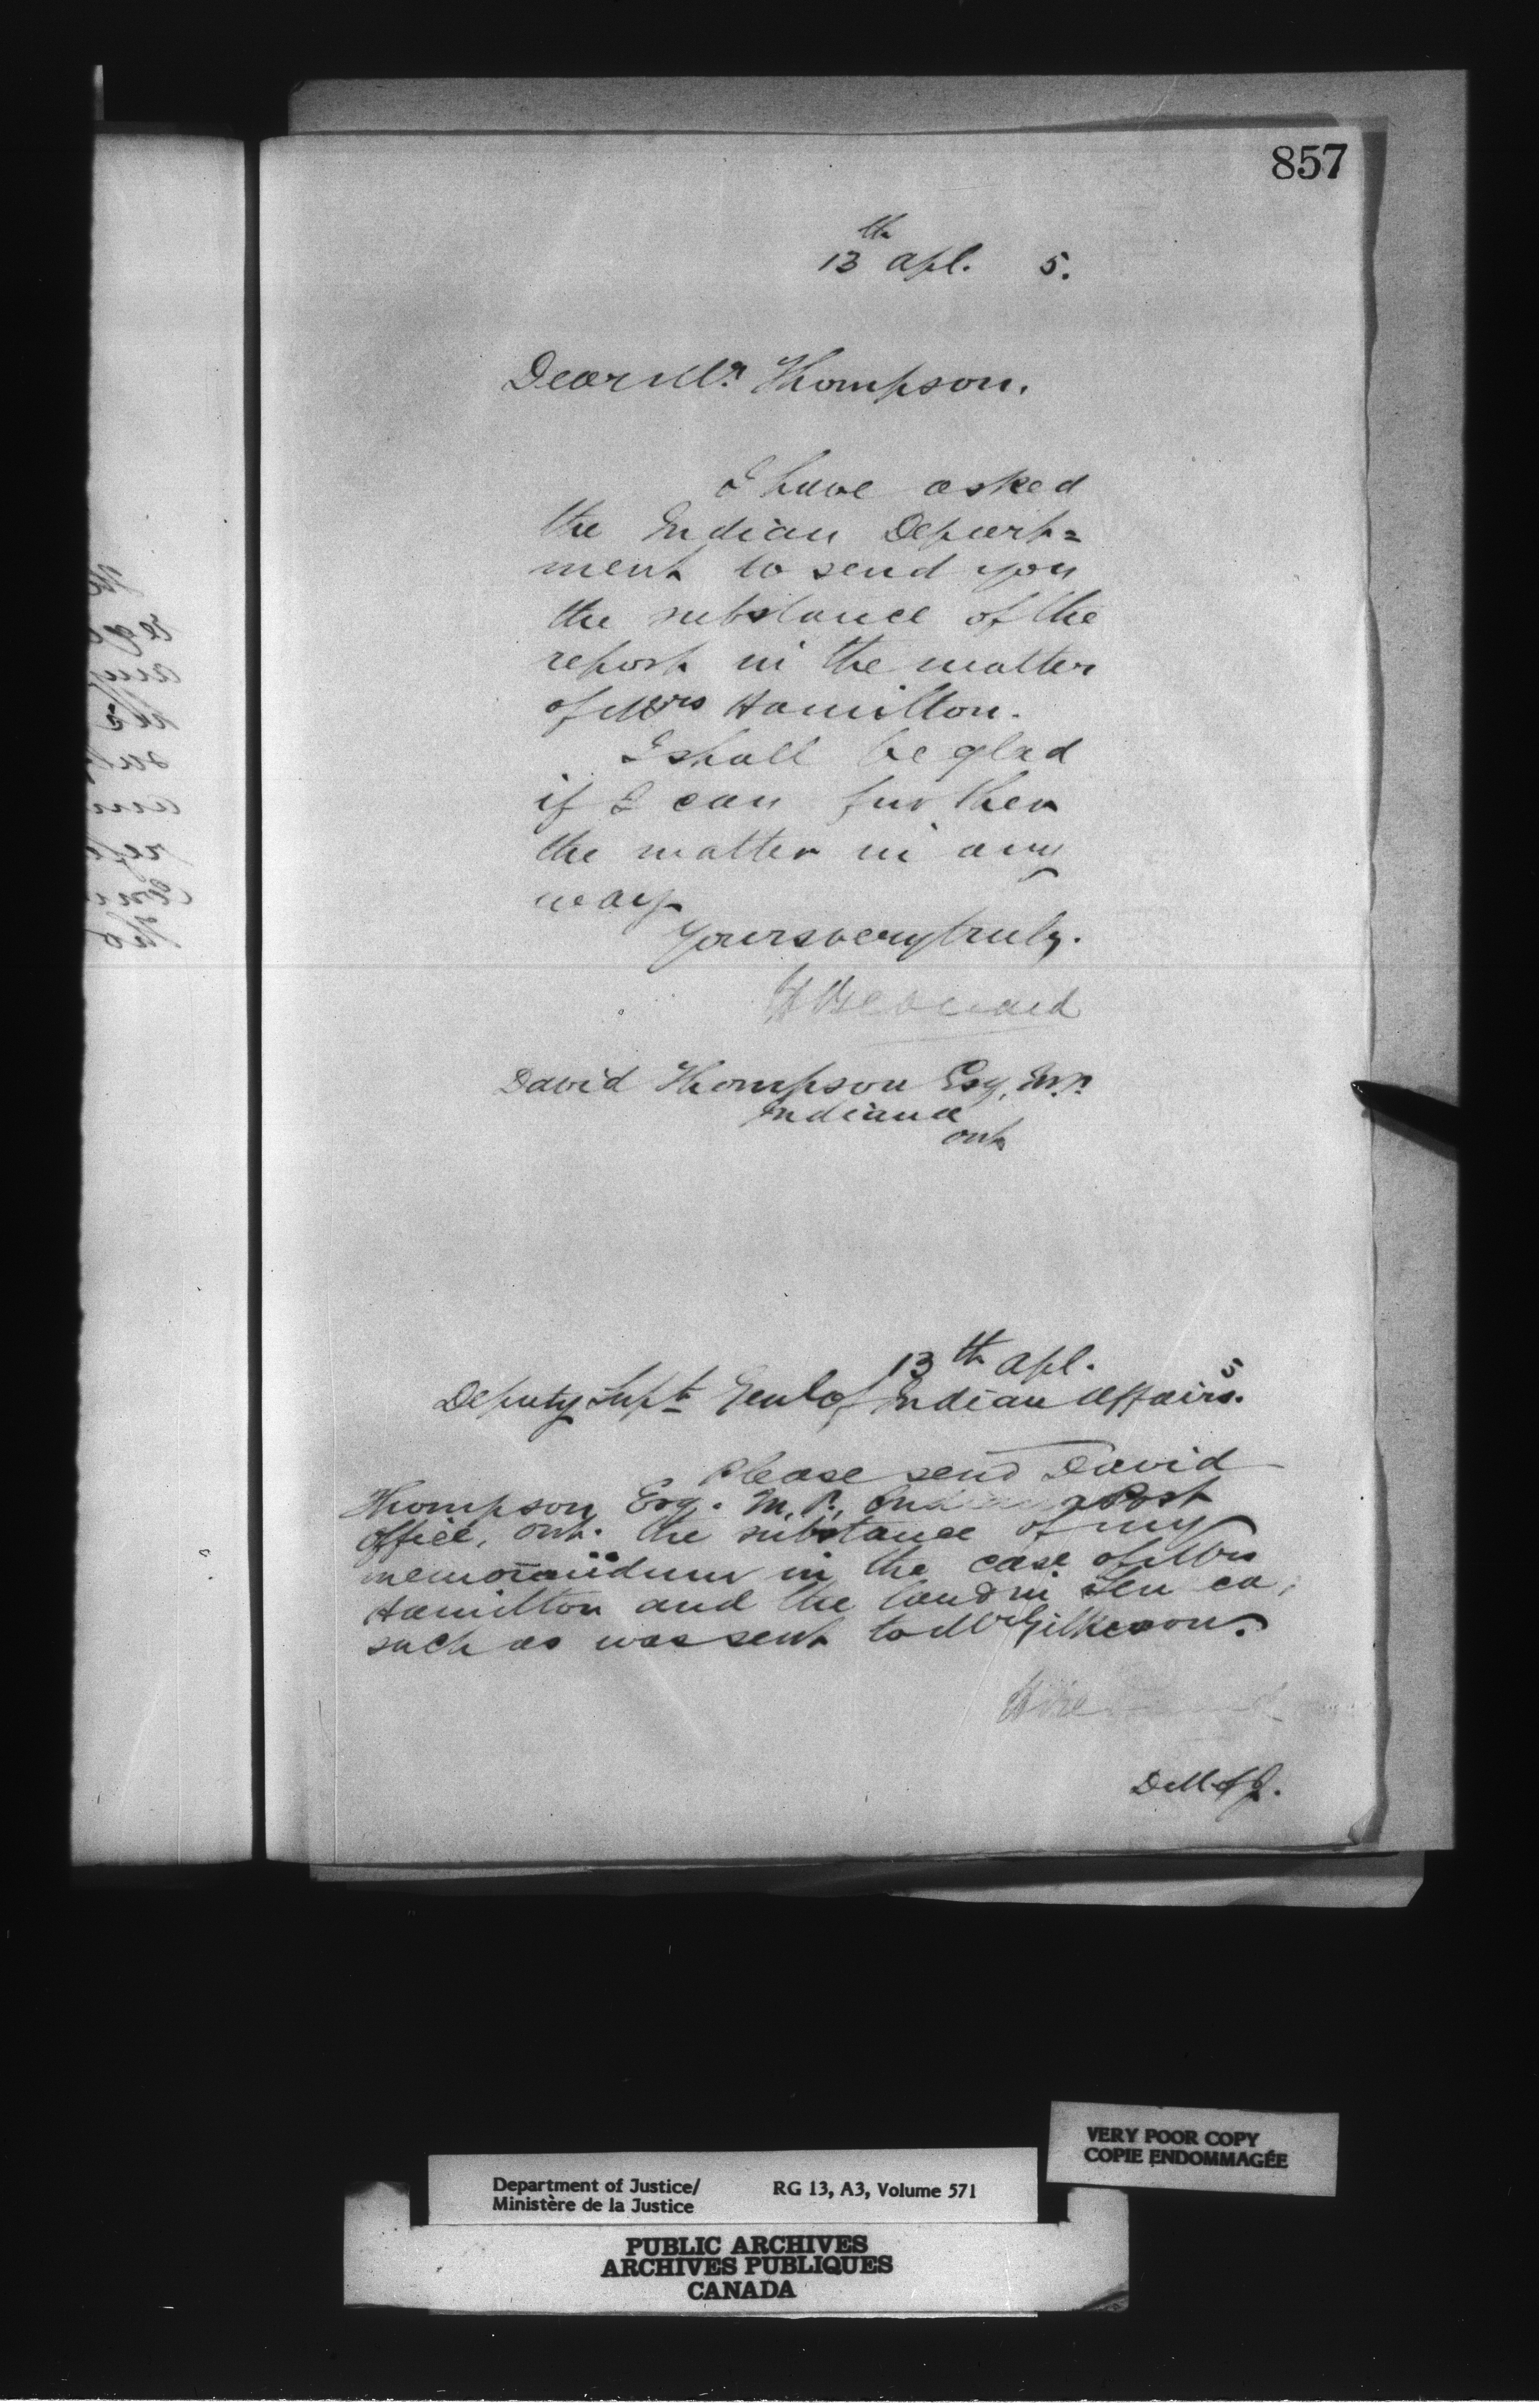 857
13th Apl. 5.
Dear Mr. Thompson.
I have asked
the Indian Depart=
ment to send you
the substance of the
report in the matter
of Mrs Hamilton.
I shall be glad
if I can further
the matter in any
way.
Yours very truly.
H Bernard
David Thompson Esq, M.P.
Indiana
Ont
13th Apl. 5
Deputy Supt Genl of Indian Affairs.
Please send David
Thompson Esq. M.P., Indiana Post
Office, Ont. the substance of my
memorandum in the case of Mrs
Hamilton and the land in
such as was sent to Mr Gilkeson.
D M of J.
VERY POOR COPY
COPIE ENDOMMAGÉE
Department of Justice/ RG 13, A3, Volume 571
Ministère de la Justice
PUBLIC ARCHIVES
ARCHIVES PUBLIQUES
CANADA